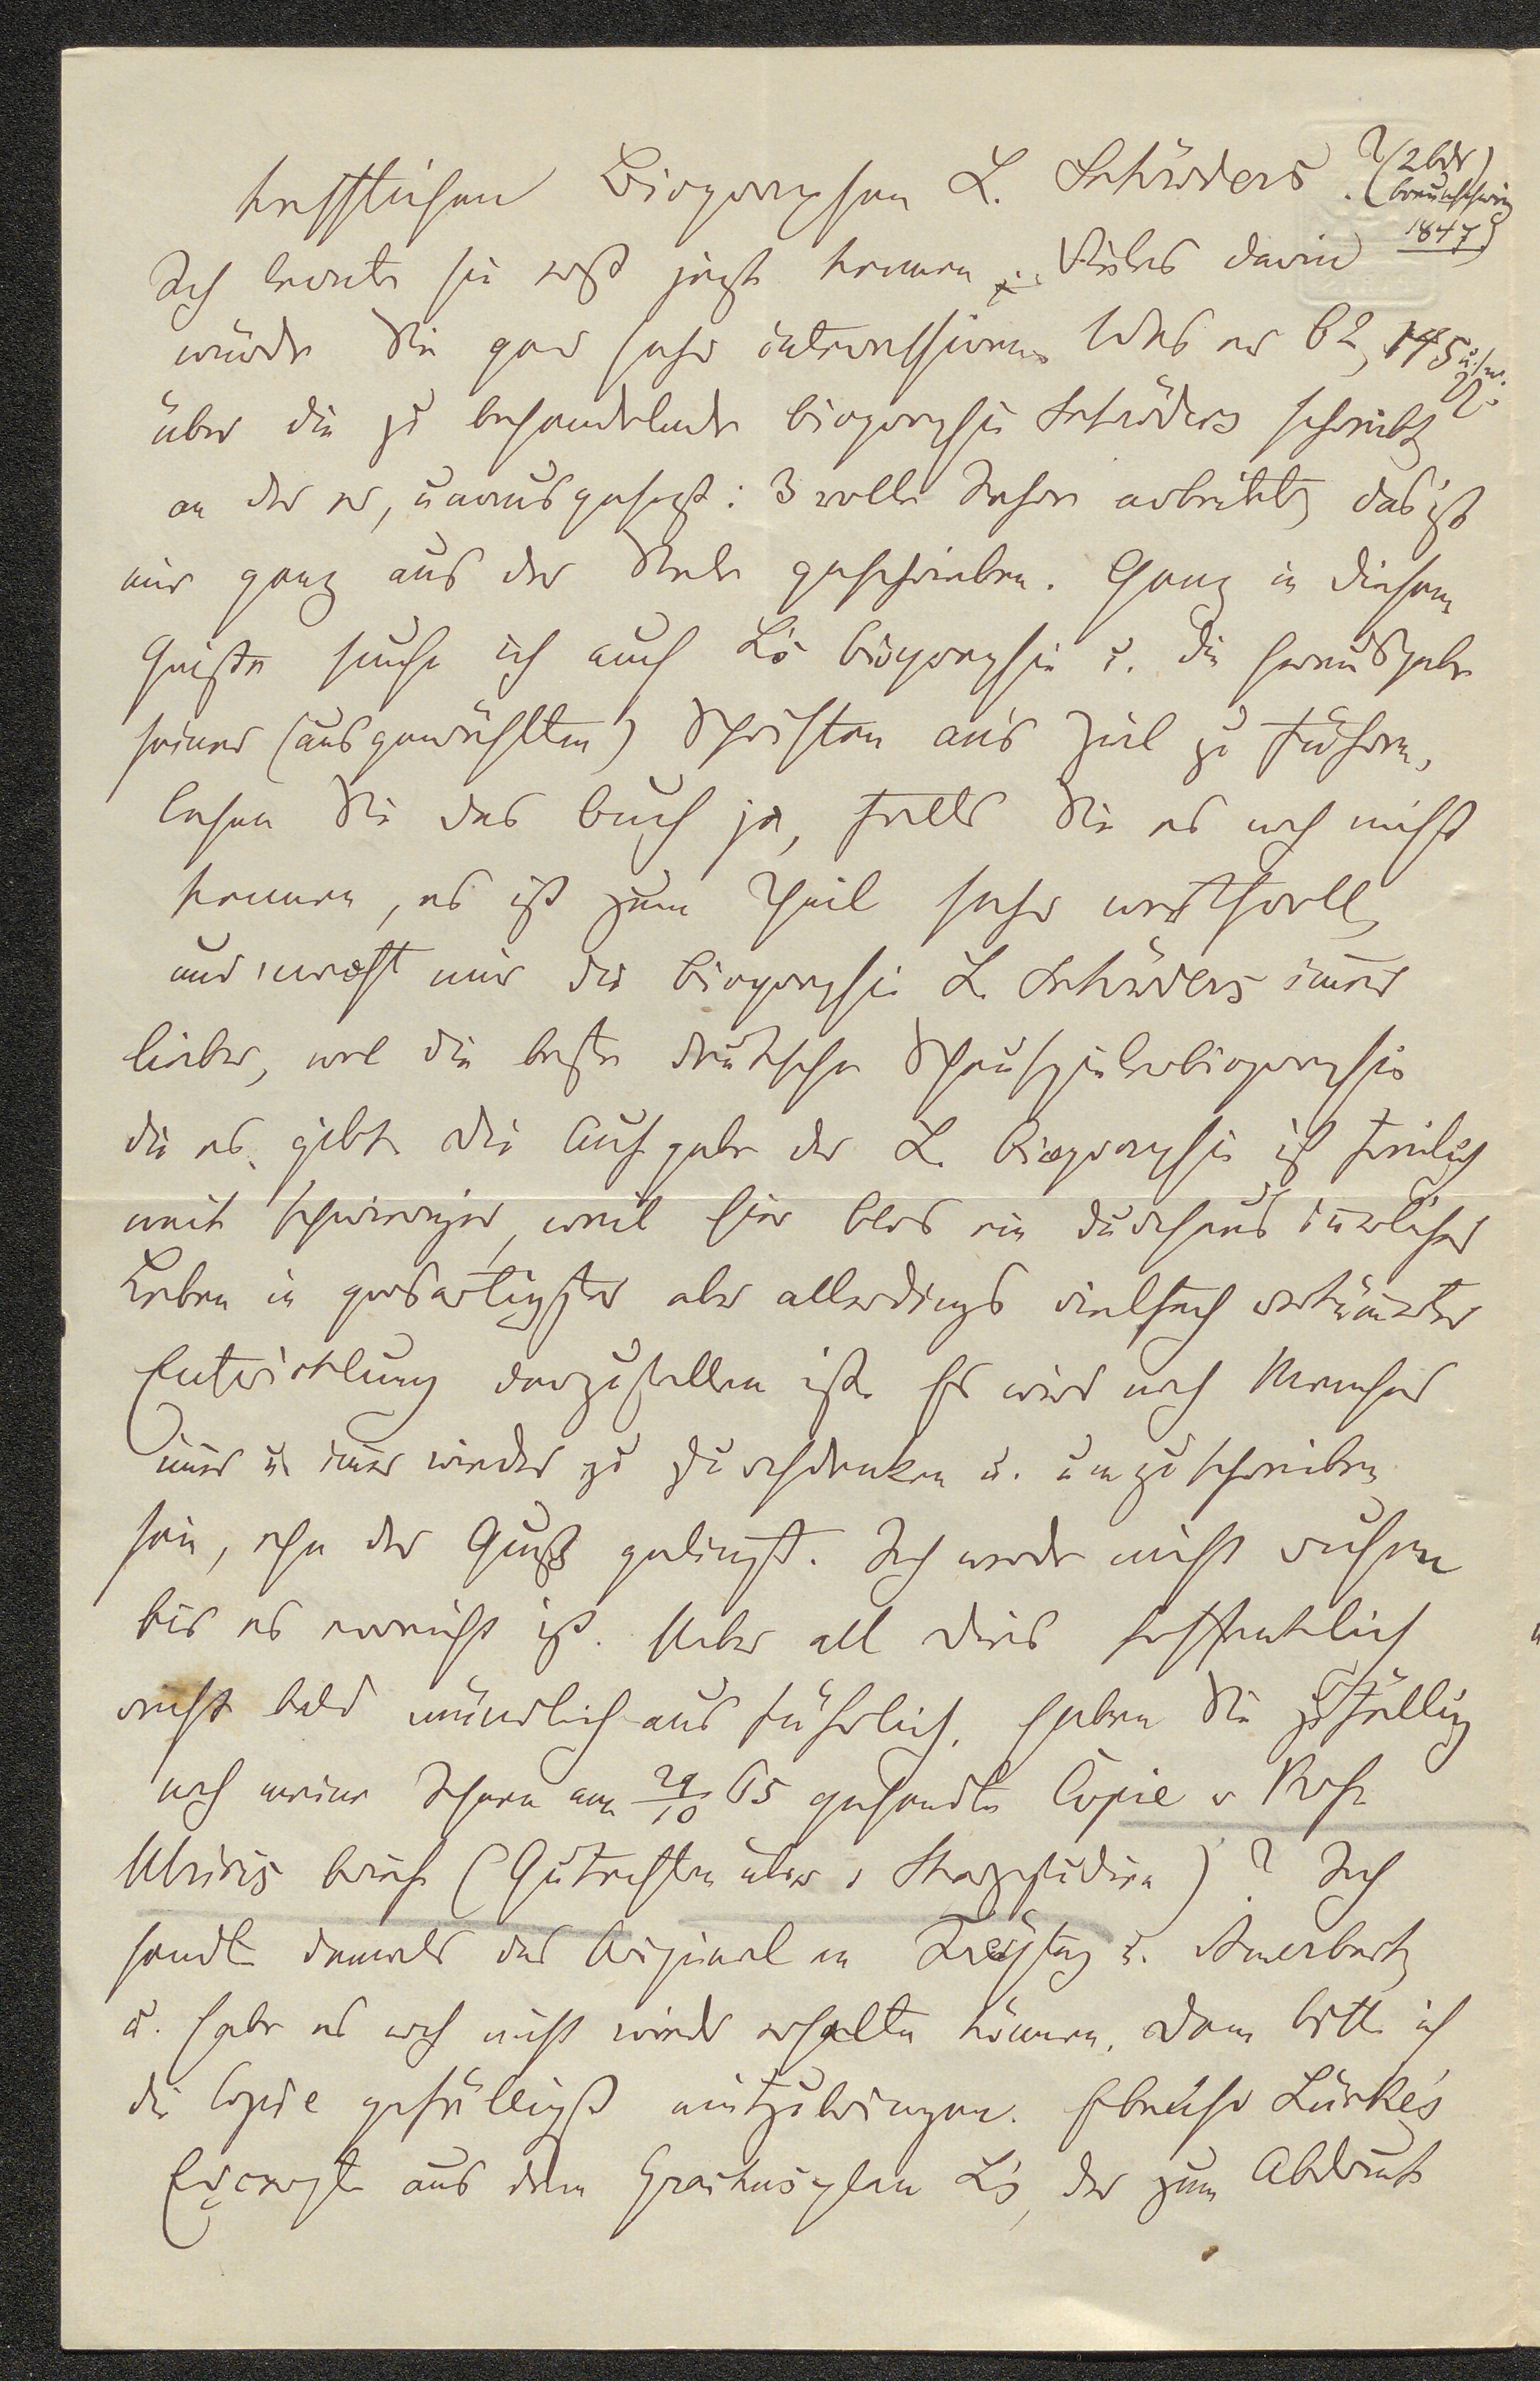 trefflichen Biographen L. Schröders? (2 Bde
Braunschweig
1847)
Ich lernte sie erst jetzt kennen. Vieles darin
würde Sie gar sehr interessieren. Was er B 2, 145 u.
über die zu behandelnde Biographie Schröders schreibt,
an der er, unausgesetzt: 3 volle Jahre arbeitete, das ist
mir ganz aus der Seele geschrieben. Ganz in diesem
Geiste suche ich auch L's Biographie u. die Herausgabe
seiner (ausgewählten) Schriften an's Ziel zu führen,
lesen Sie das Buch ja, falls Sie es noch nicht
kennen, es ist zum Theil sehr werthvoll,
und mir die Biographie L. Schröders immer
lieber, wol die beste deutsche Schauspielerbiographie
die es gibt. Die Aufgabe der L. Biographie ist freilich
weit schwieriger, weil hier blos ein durchaus innerliches
Leben in grosartigster aber allerdings vielfach verkümmerter
Entwicklung darzustellen ist. Es wird noch Manches
immer u. immer wieder zu durchdenken u. umzuschreiben
sein, ehe der Guß gelingt. Ich werde nicht ruhen
bis es erreicht ist. Ueber all dies hoffentlich
recht bald mündlich ausführlich. Haben Sie zufällig
noch meine Ihnen am 29/10 65 gesandte Copie v Prof.
Ulricis Brief (Gutachten über d Shaksp.studien)? Ich
sandte damals das Original an Freytag u. Auerbach
u. habe es noch nicht wieder erhalten können. Dann bitte ich
die Copie gefälligst mitzubringen. Ebenso Lücke's
Excerpte aus dem Gracchusplan L's, der zum Abdruck